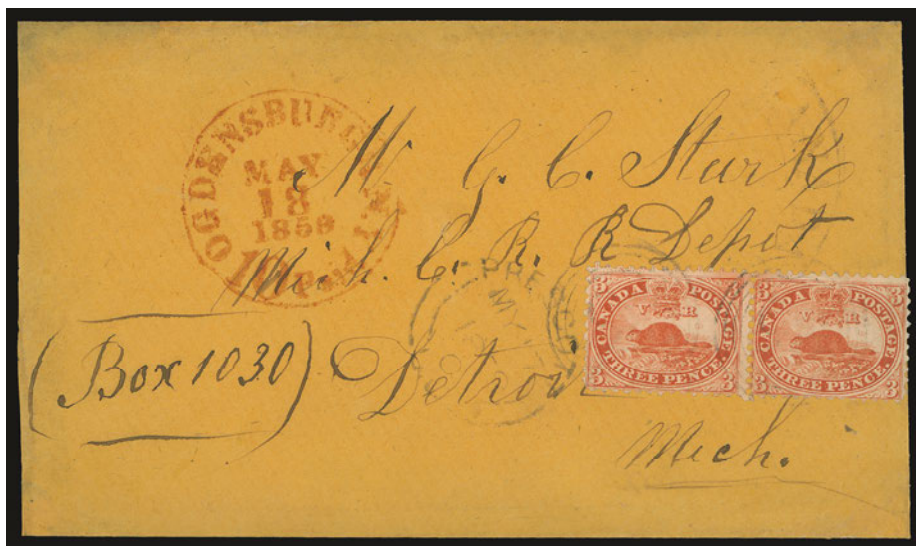 OGDENSBURGH N.Y.
MAY
18
1859
10 Paid
M G. C. Stark
Mich. C. R. R Depot
(Box 1030)
Detroi
Mich.
PRE
MY
CANADA POSTAGE.
3 3
V R
THREE PENCE.
3 3
CANADA POSTAGE.
3 3
V R
THREE PENCE.
3 3